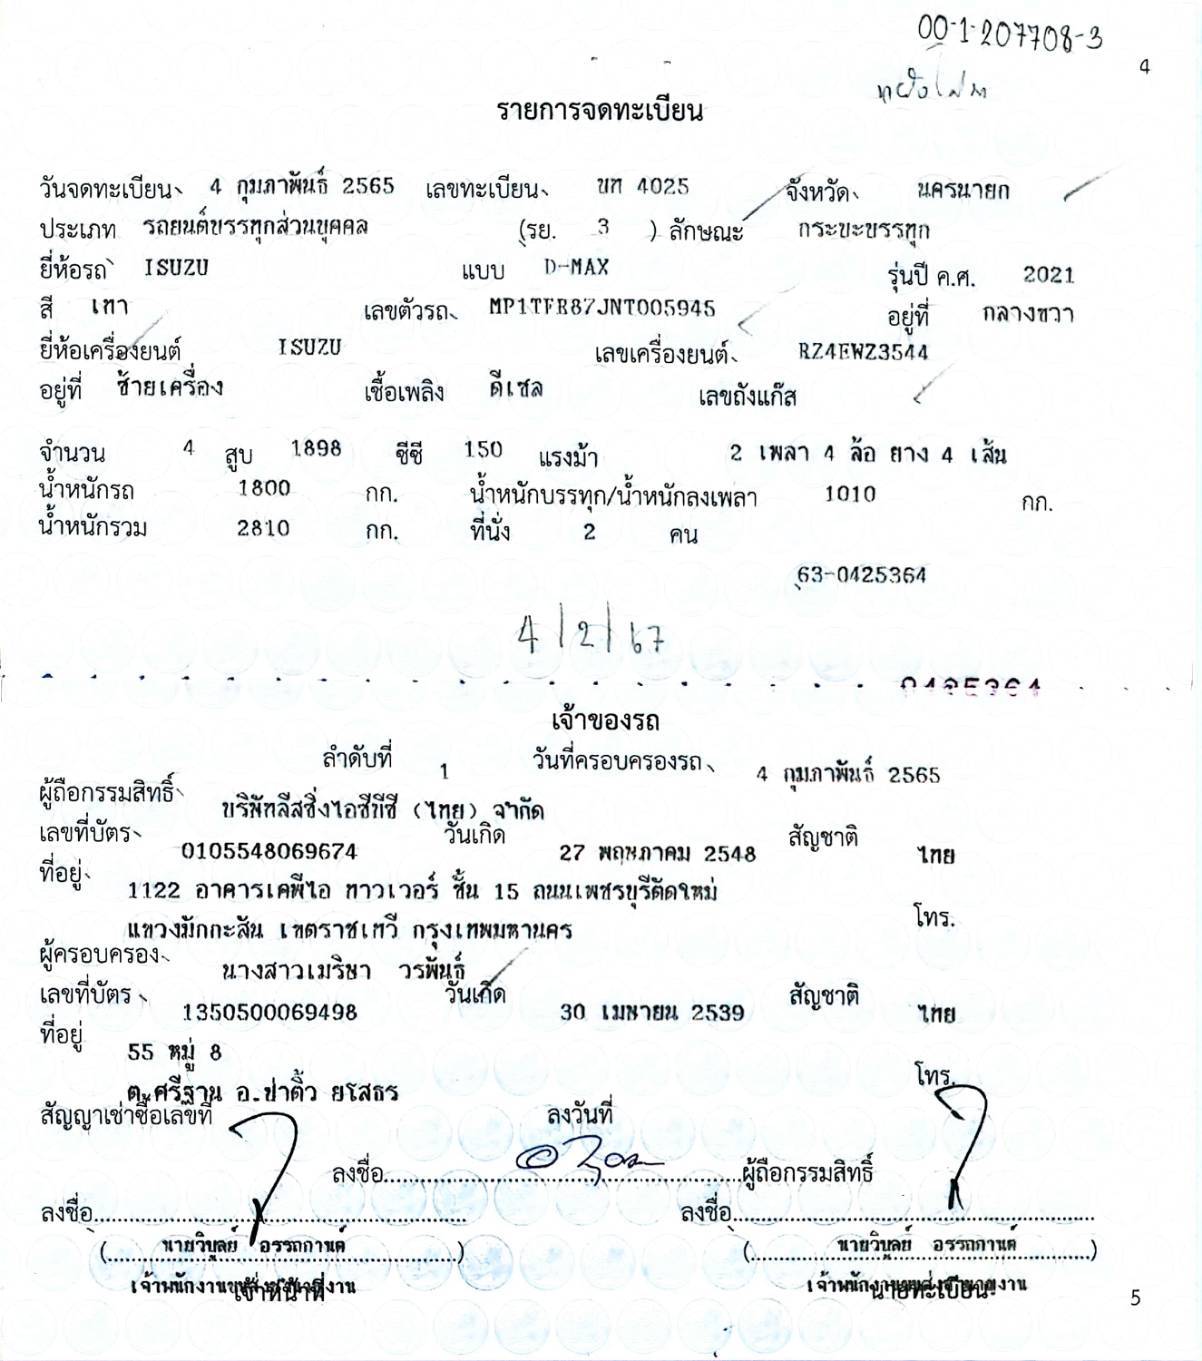 00-1-207708-3
4
รายการจดทะเบียน
วันจดทะเบียน 4 กุมภาพันธ์ 2565 เลขทะเบียน บท 4025 จังหวัด นครนายก
ประเภท รถยนต์บรรทุกส่วนบุคคล (รย. 3 ) ลักษณะ กระบะบรรทุก
ยี่ห้อรถ ISUZU แบบ D-MAX รุ่นปี ค.ศ. 2021
สี เทา เลขตัวรถ MP1TFR87JNT005945 อยู่ที่ กลางขวา
ยี่ห้อเครื่องยนต์ ISUZU เลขเครื่องยนต์ RZ4EWZ3544
อยู่ที่ ซ้ายเครื่อง เชื้อเพลิง ดีเซล เลขถังแก๊ส
จำนวน 4 สูบ 1898 ซีซี 150 แรงม้า 2 เพลา 4 ล้อ ยาง 4 เส้น
น้ำหนักรถ 1800 กก. น้ำหนักบรรทุก/น้ำหนักลงเพลา 1010 กก.
น้ำหนักรวม 2810 กก. ที่นั่ง 2 คน
63-0425364
4/2/67
เจ้าของรถ
ลำดับที่ 1 วันที่ครอบครองรถ 4 กุมภาพันธ์ 2565
ผู้ถือกรรมสิทธิ์ บริษัทลีสซิ่งไอซีบีซี (ไทย) จำกัด
เลขที่บัตร 0105548069674 วันเกิด 27 พฤษภาคม 2548 สัญชาติ ไทย
ที่อยู่ 1122 อาคารเคพีไอ ทาวเวอร์ ชั้น 15 ถนนเพชรบุรีตัดใหม่
แขวงมักกะสัน เขตราชเทวี กรุงเทพมหานคร โทร.
ผู้ครอบครอง นางสาวเมริษา วรพันธ์
เลขที่บัตร 1350500069498 วันเกิด 30 เมษายน 2539 สัญชาติ ไทย
ที่อยู่ 55 หมู่ 8
ต.ศรีฐาน อ.ป่าติ้ว ยโสธร โทร.
สัญญาเช่าซื้อเลขที่ ลงวันที่
ลงชื่อ ผู้ถือกรรมสิทธิ์
ลงชื่อ ลงชื่อ
(นายวิบูลย์ อรรถกานต์) (นายวิบูลย์ อรรถกานต์)
เจ้าพนักงานขนส่งชำนาญงาน เจ้าพนักงานขนส่งชำนาญงาน
เจ้าหน้าที่ นายทะเบียน
5